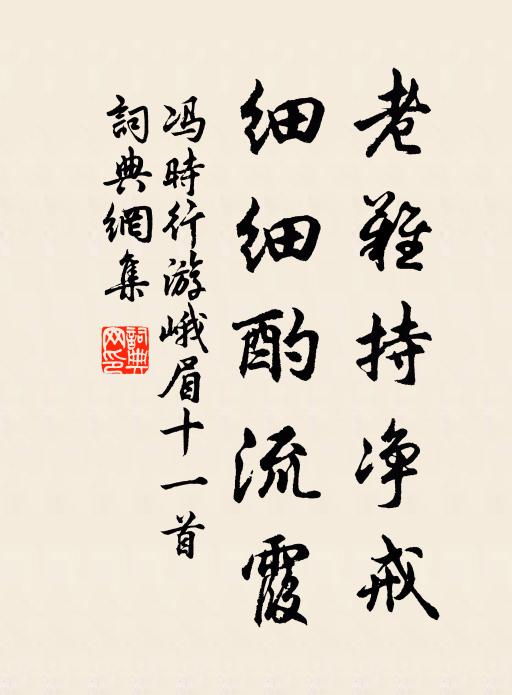 老難持净戒
细细酌流霞
冯時行游峨眉十一首
詞典網集
詞典网印